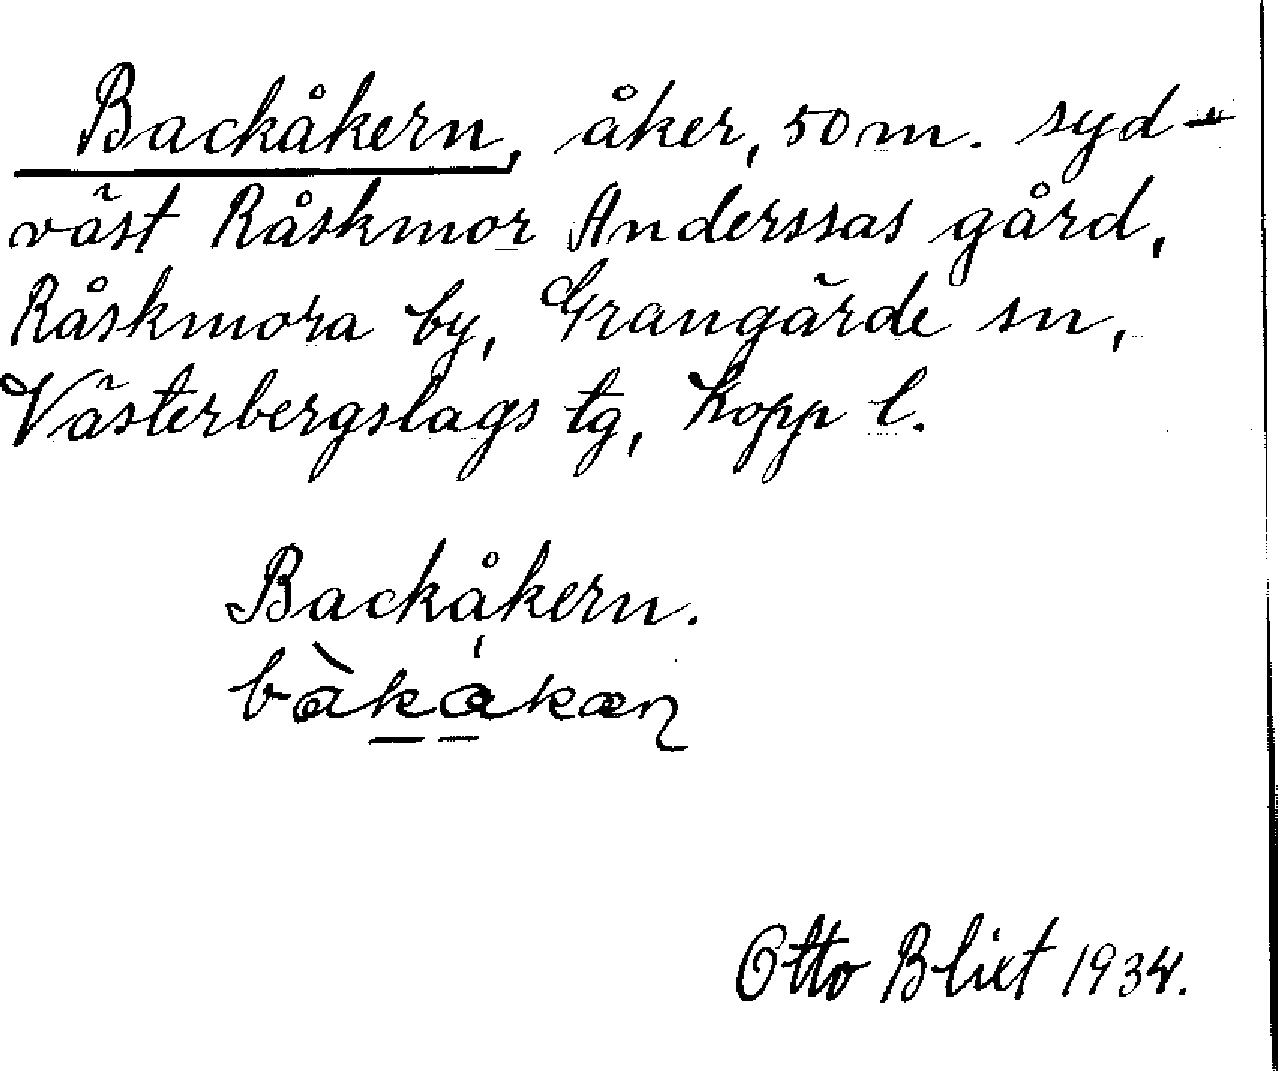 Backåkern, åker, 50 m. syd-
väst Råskmor Anderssas gård,
Råskmora by, Grangärde sn,
Västerbergslags tg, Kopp l.
Backåkern.
bàkåkæɳ
Otto Blixt 1934.